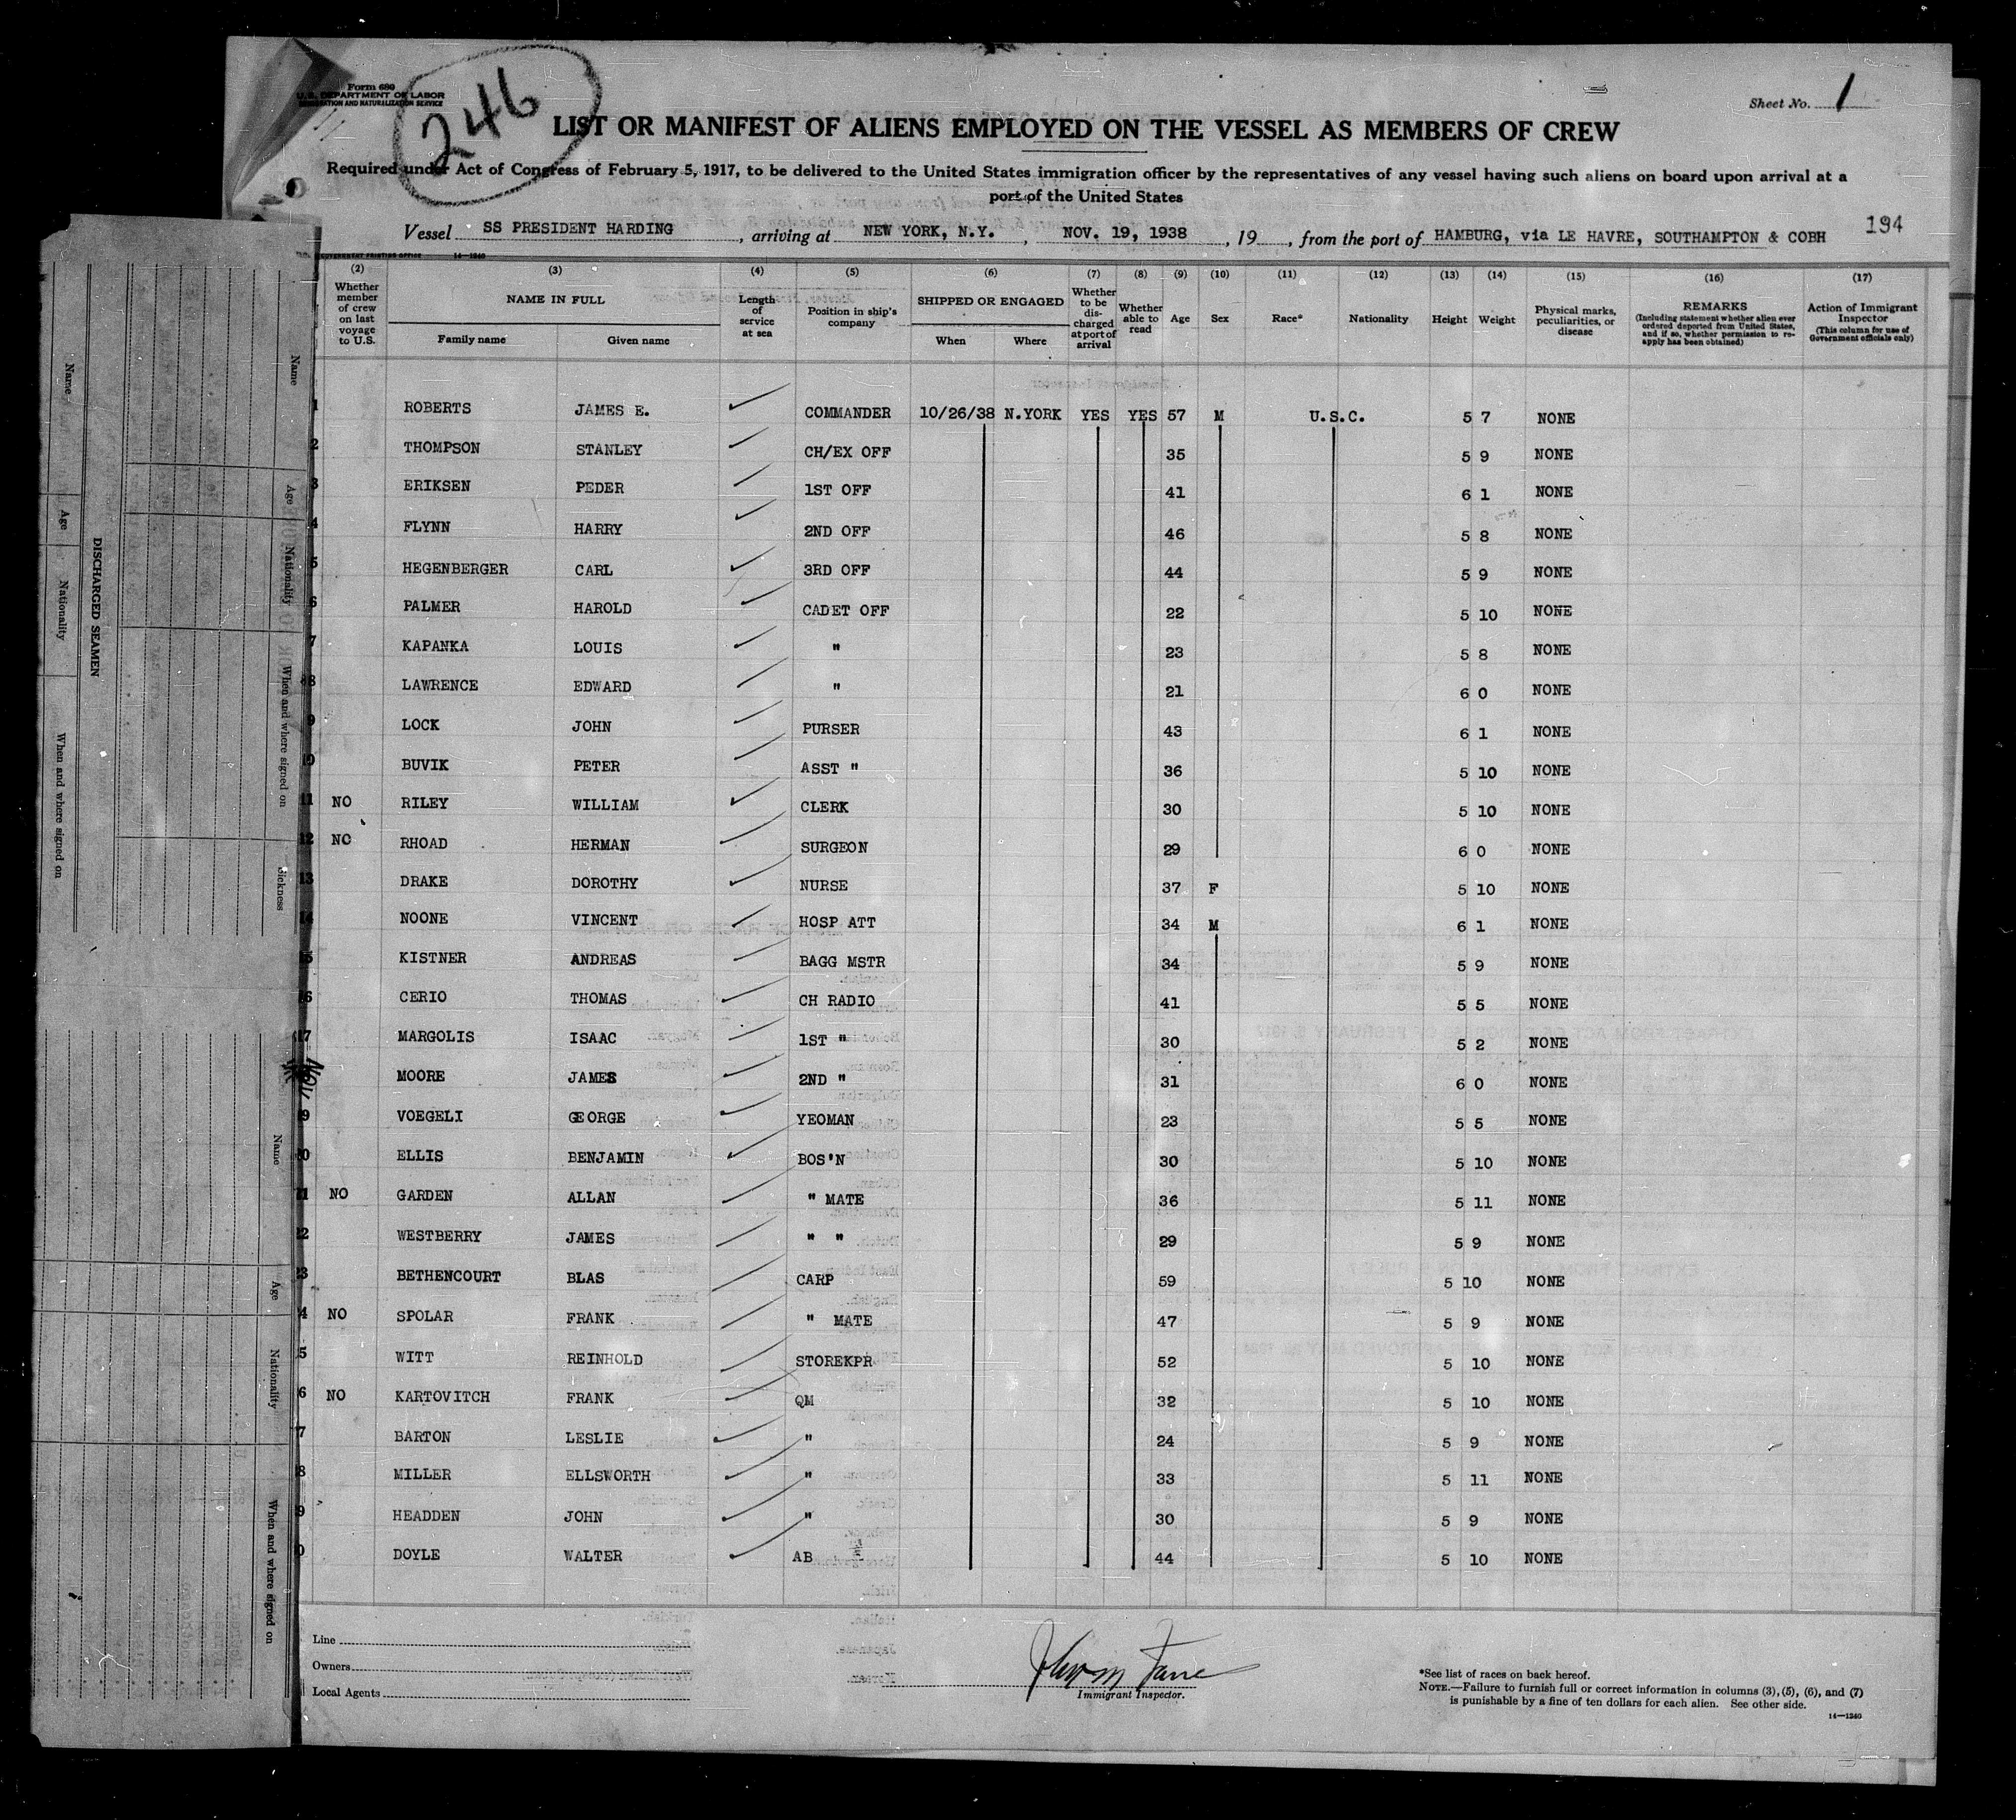 Form 680
U.S. DEPARTMENT OF LABOR
IMMIGRATION AND NATURALIZATION SERVICE
246
Sheet No. 1
LIST OR MANIFEST OF ALIENS EMPLOYED ON THE VESSEL AS MEMBERS OF CREW
Required under Act of Congress of February 5, 1917, to be delivered to the United States immigration officer by the representatives of any vessel having such aliens on board upon arrival at a
port of the United States
Vessel SS PRESIDENT HARDING, arriving at NEW YORK, N.Y., NOV. 19, 1938, 19, from the port of HAMBURG, via LE HAVRE, SOUTHAMPTON & COBH 194
GOVERNMENT PRINTING OFFICE 14—1240
(2) (3) (4) (5) (6) (7) (8) (9) (10) (11) (12) (13) (14) (15) (16) (17)
Whether member of crew on last voyage to U.S.
NAME IN FULL
Family name Given name
Length of service at sea
Position in ship's company
SHIPPED OR ENGAGED
When Where
Whether to be discharged at port of arrival
Whether able to read
Age Sex Race* Nationality Height Weight
Physical marks, peculiarities, or disease
REMARKS
(Including statement whether alien ever ordered deported from United States, and if so, whether permission to re-apply has been obtained)
Action of Immigrant Inspector
(This column for use of Government officials only)
1 ROBERTS JAMES E. COMMANDER 10/26/38 N.YORK YES YES 57 M U.S.C. 5 7 NONE
2 THOMPSON STANLEY CH/EX OFF 35 5 9 NONE
3 ERIKSEN PEDER 1ST OFF 41 6 1 NONE
4 FLYNN HARRY 2ND OFF 46 5 8 NONE
5 HEGENBERGER CARL 3RD OFF 44 5 9 NONE
6 PALMER HAROLD CADET OFF 22 5 10 NONE
7 KAPANKA LOUIS " 23 5 8 NONE
8 LAWRENCE EDWARD " 21 6 0 NONE
9 LOCK JOHN PURSER 43 6 1 NONE
10 BUVIK PETER ASST " 36 5 10 NONE
11 NO RILEY WILLIAM CLERK 30 5 10 NONE
12 NO RHOAD HERMAN SURGEON 29 6 0 NONE
13 DRAKE DOROTHY NURSE 37 F 5 10 NONE
14 NOONE VINCENT HOSP ATT 34 M 6 1 NONE
5 KISTNER ANDREAS BAGG MSTR 34 5 9 NONE
6 CERIO THOMAS CH RADIO 41 5 5 NONE
17 MARGOLIS ISAAC 1ST " 30 5 2 NONE
MOORE JAMES 2ND " 31 6 0 NONE
9 VOEGELI GEORGE YEOMAN 23 5 5 NONE
0 ELLIS BENJAMIN BOS'N 30 5 10 NONE
1 NO GARDEN ALLAN " MATE 36 5 11 NONE
2 WESTBERRY JAMES " " 29 5 9 NONE
3 BETHENCOURT BLAS CARP 59 5 10 NONE
4 NO SPOLAR FRANK " MATE 47 5 9 NONE
5 WITT REINHOLD STOREKPR 52 5 10 NONE
6 NO KARTOVITCH FRANK QM 32 5 10 NONE
7 BARTON LESLIE " 24 5 9 NONE
8 MILLER ELLSWORTH " 33 5 11 NONE
9 HEADDEN JOHN " 30 5 9 NONE
0 DOYLE WALTER AB 44 5 10 NONE
Line
Owners
Local Agents
Immigrant Inspector.
*See list of races on back hereof.
NOTE.—Failure to furnish full or correct information in columns (3), (5), (6), and (7)
is punishable by a fine of ten dollars for each alien. See other side.
14—1240
DISCHARGED SEAMEN
Name Age Nationality When and where signed on
Name Age Nationality When and where signed on Sickness
Name Age Nationality When and where signed on